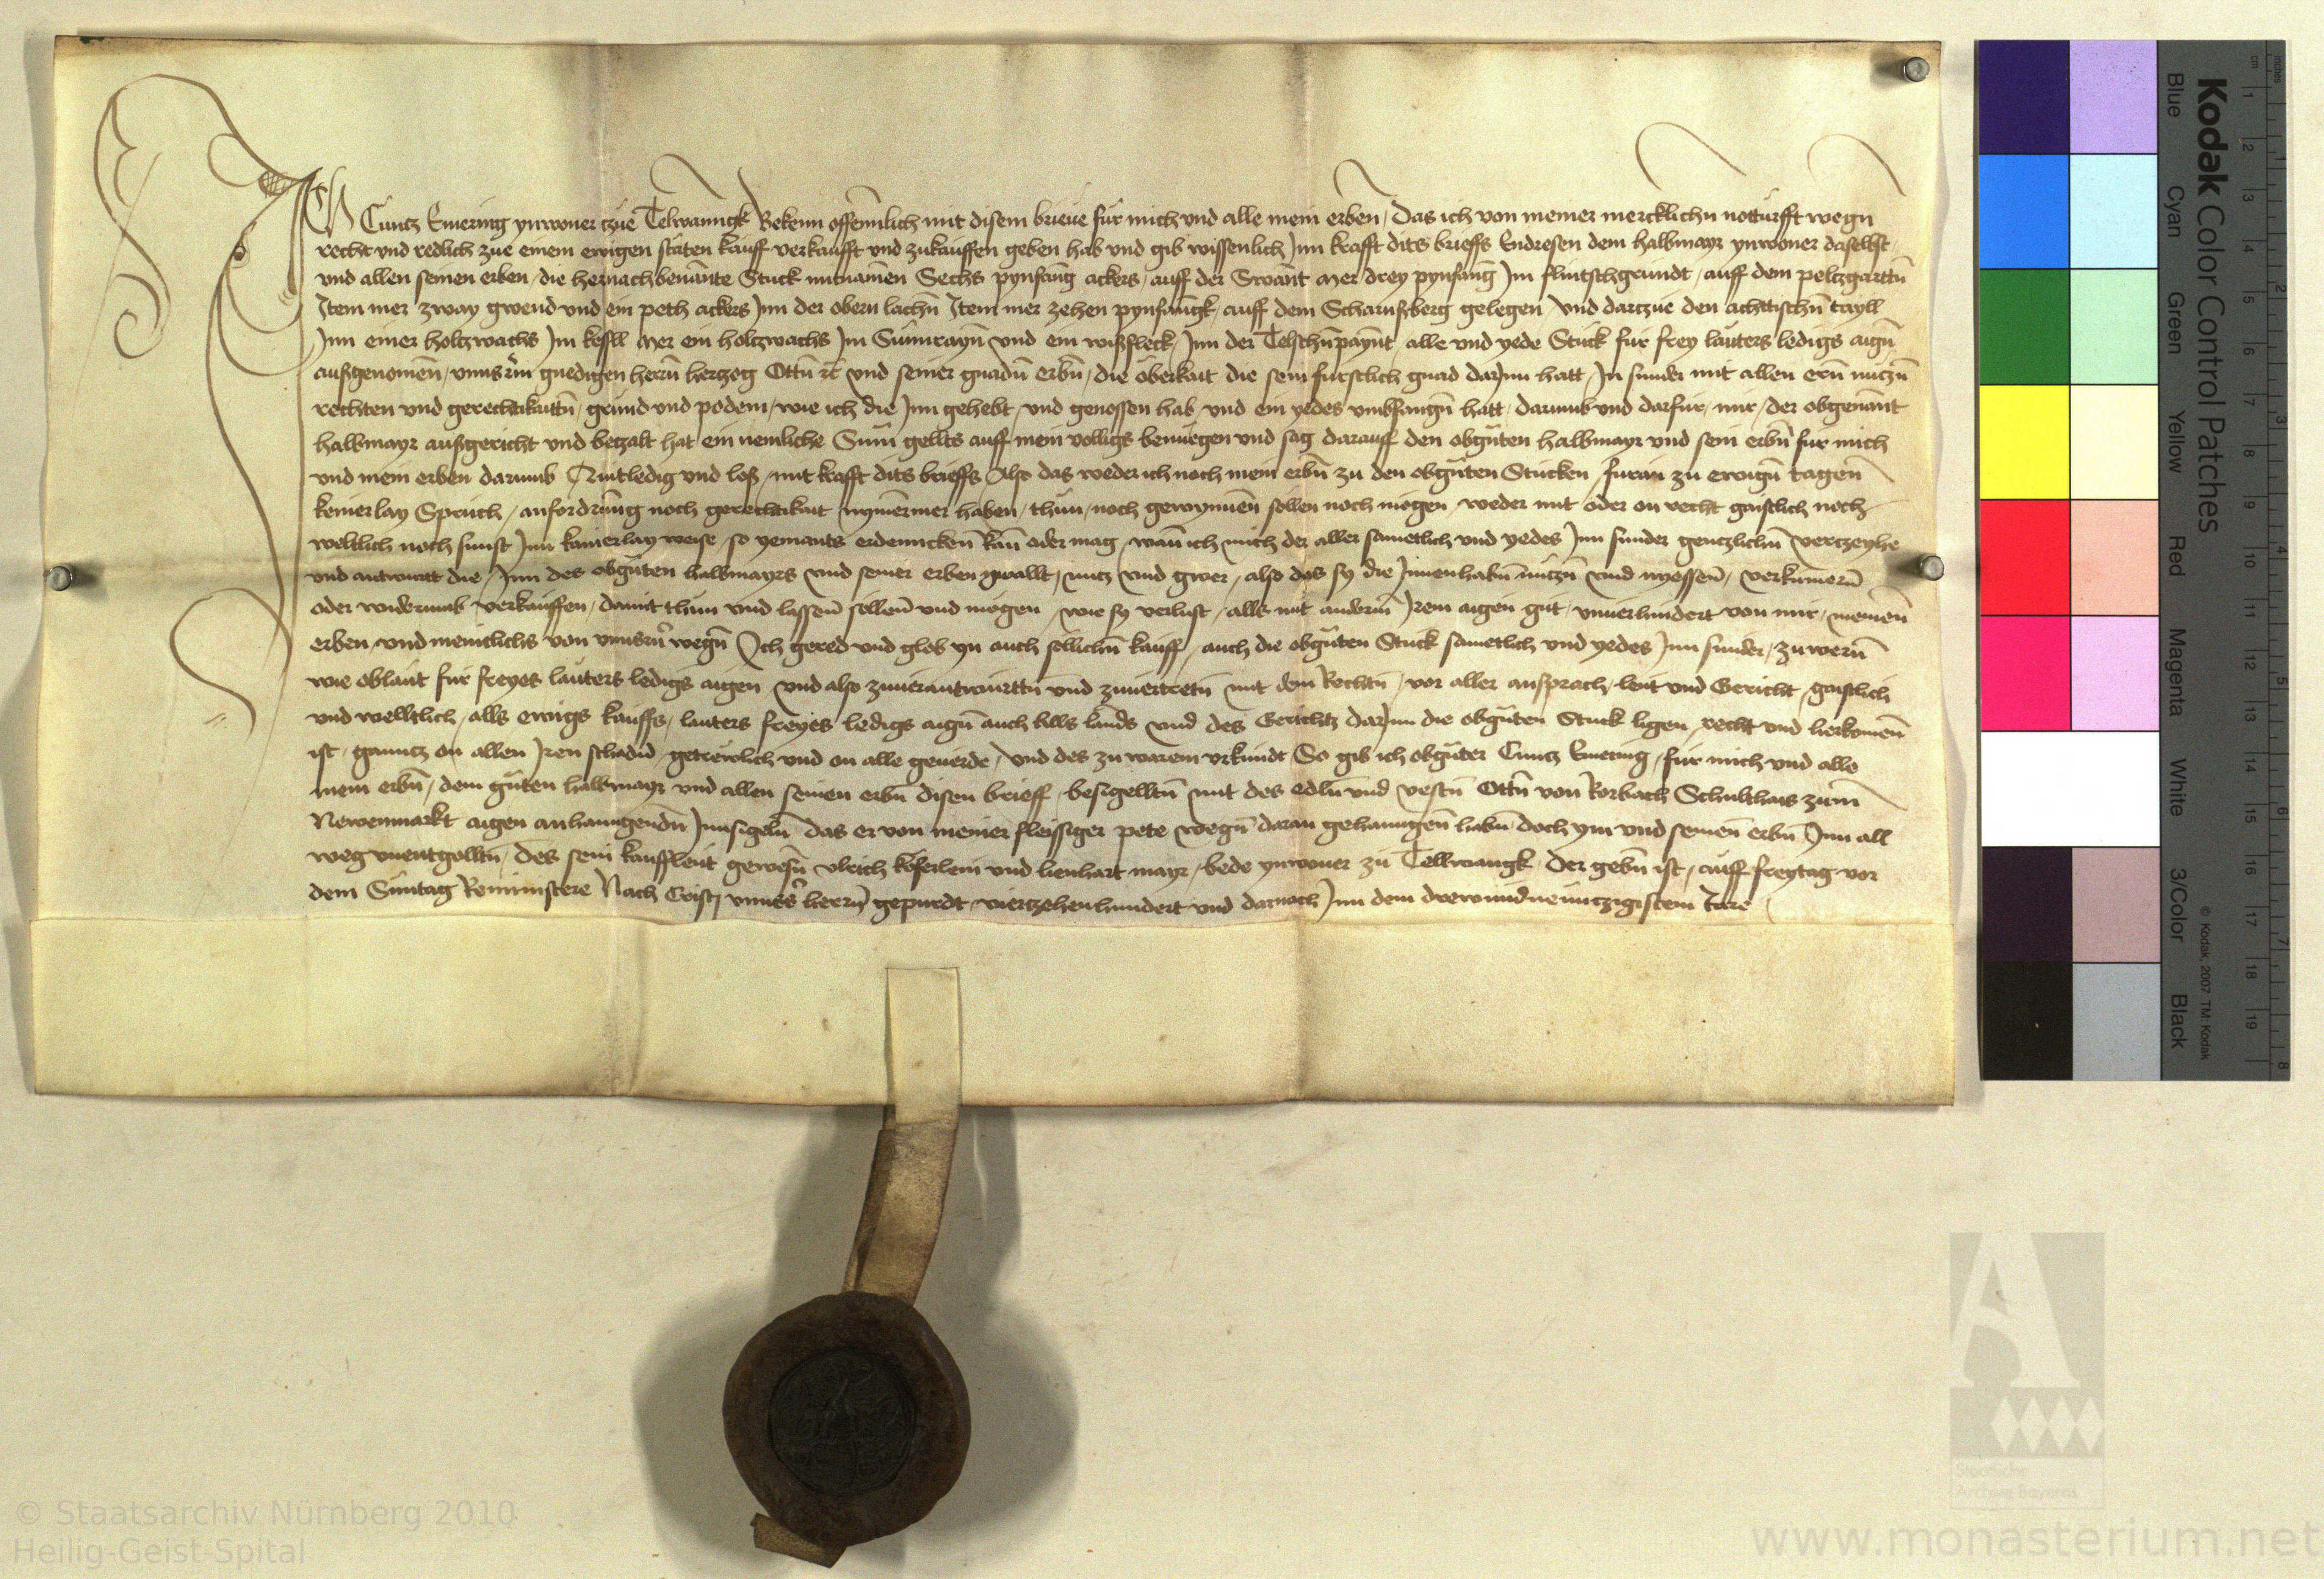 Ich Cuntz Emering ynwoner tzue Telwanngk Beken offennlich mit disem brieue fur mich und alle mein erben / Das ich von meiner mercklichn notturfft wegn
recht und redlich zue einem ewigen staten kauff verkaufft und zukauffen geben hab und gib wissenlich Inn krafft dits brieffs Endresen dem halbmayr ynwoner daselbst
und allen seinen erben / die hernachbenante Stuck mitnamen Sechs pynfang ackers / auff der Swant Mer drey pynfang Im flintschgrundt / auff dem peltzgarttn
Item mer zway gwend und ein peth ackers Inn der obern lachn Item mer zehen pynfangk / auff dem Scharnßberg gelegen Und dartzue den tayll
Inn einer holtzwachs Im kessll Mer ein holtzwachs Im Sunnrayn und ein wißfleck / Inn der alle und yede Stuck fur frey lauters ledigs aign
außgenomen / unnsrm gnedigen herrn hertzog Ottn ꝛc und seiner gnadn erbn / die oberkait die sein furstlich gnad darInn hatt / In sunder mit allen ern nutzn
rechten und gerechtikaittn / grund und podem / wie ich die Inn gehebt / und genossen hab / und ein yedes umbfangn hatt / darumb und darfur / mir / der obgenant
halbmayr außgericht und betzalt hat ein nemliche Sum gellts auff mein volligs benuegen und sag darauff den obguten halbmayr und sein erbn fur mich
und mein erben darumb Quitledig und loß / mit krafft dits brieffs Also das weder ich noch mein erbn zu den obguten Stucken / furan zu ewign tagen
keinerlay Spruch / anfordrung noch gerechtikait nymermer haben / thun / noch gewynnen sollen noch mogen / weder mit oder on recht gaistlich noch
weltlich noch sunst Inn kainerlay weise / so yemants erdencken kan oder mag / wan ich mich der aller sametlich und yedes Inn sunder gentzlichn vertzeyhe
und antwurtt die / Inn des obguten halbmayrs und seiner erben gwallt / nutz und gwer / also das sy die Innenhabn nutzn und nyessen / verkumern
oder widerumb verkauffen / damit thun und lassen sollen und mogen / wie sy verlust / alls mit anderm Irem aigen gut / unuerhindert von mir / meinen
erben / und menicklichs von unnsrn wegn Ich gered und glob yn auch sollichn kauff / auch die obguten Stuck sametlich und yedes Inn sunder / zuwern
wie oblaut fur freyes lauters ledigs aigen und also zuuerantwurttn und zuuertretn mit dem Rechtn / vor aller ansprach / leut und Gericht / gaistlich
und welltlich / alls ewigs kauffs / lauters freyes ledigs aign auch lands und des Gerichtz darInn die obguten Stuck ligen / recht und herkomen
ist / ganntz on allen Iren schadn / getrewlich und on alle geuerde / Und des zu warem urkundt So gib ich obguter Cuntz Emering / fur mich und alle
mein erbn / dem guten halbmayr und allen seinen erbn disen brieff / besigelltn mit des edln und vestn Ottn von Rorbach Schulthais zum
Newenmarkt aigen anhanngendn Innsigeln das er von meiner fleissiger pete wegn daran gehanngen habn doch ym und seinen erbn Inn all
weg unentgolltn / Des sein kauffleut gewesn Ulrich und lienhart mayr / bede ynwoner zu Tellwangk Der gebn ist / auff freytag vor
dem Suntag Reminiscere Nach Cristj unnsers herrn gepurdt viertzehenhundert und darnach Inn dem drewundneuntzigistem Jare
Kodak Color Control Patches
Blue Cyan Green Yellow Red Magenta White 3/Color Black
© Kodak, 2007 TM: Kodak
cm 1 2 3 4 5 6 7 8 9 10 11 12 13 14 15 16 17 18 19
inches 1 2 3 4 5 6 7 8
Staatliche
Archive Bayerns
© Staatsarchiv Nürnberg 2010
Heilig-Geist-Spital
www.monasterium.net